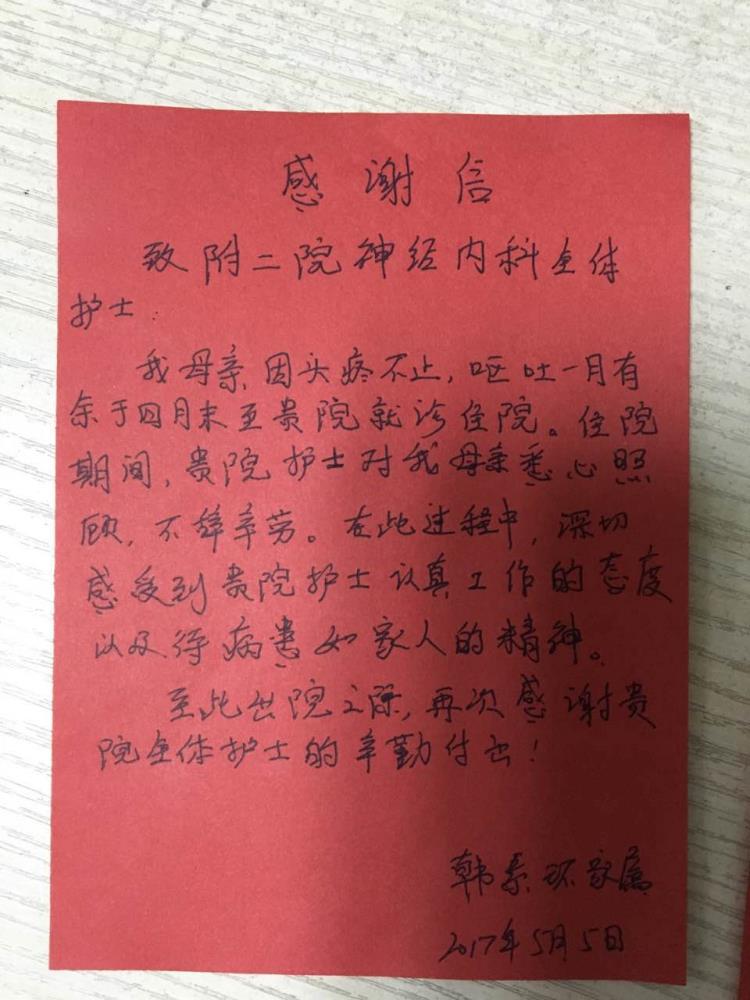 感谢信
致附二院神经内科全体
护士
我母亲因头疼不止，呕吐一月有
余于四月末至贵院就诊住院。住院
期间，贵院护士对我母亲悉心照
顾，不辞辛劳。在此过程中，深切
感受到贵院护士认真工作的态度
以及待病患如家人的精神。
至此出院之际，再次感谢贵
院全体护士的辛勤付出！
韩素环家属
2017年5月5日